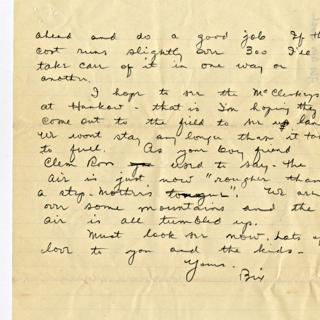 ahead and do a good job If th
cost runs slightly over 300 I'll
take care of it in one way or
another.
I hope to see the McCleskeys
at Hankow - that is I'm hoping they
come out to the field to see us lan
We wont stay any longer than it ta
to fuel. As your boy friend
Clem used to say - the
air is just now "rougher than
a step-mother's tongue". We are
over some mountains and the
air is all tumbled up.
Must look see now. Lots of
love to you and the kids -
Yours.
Bix